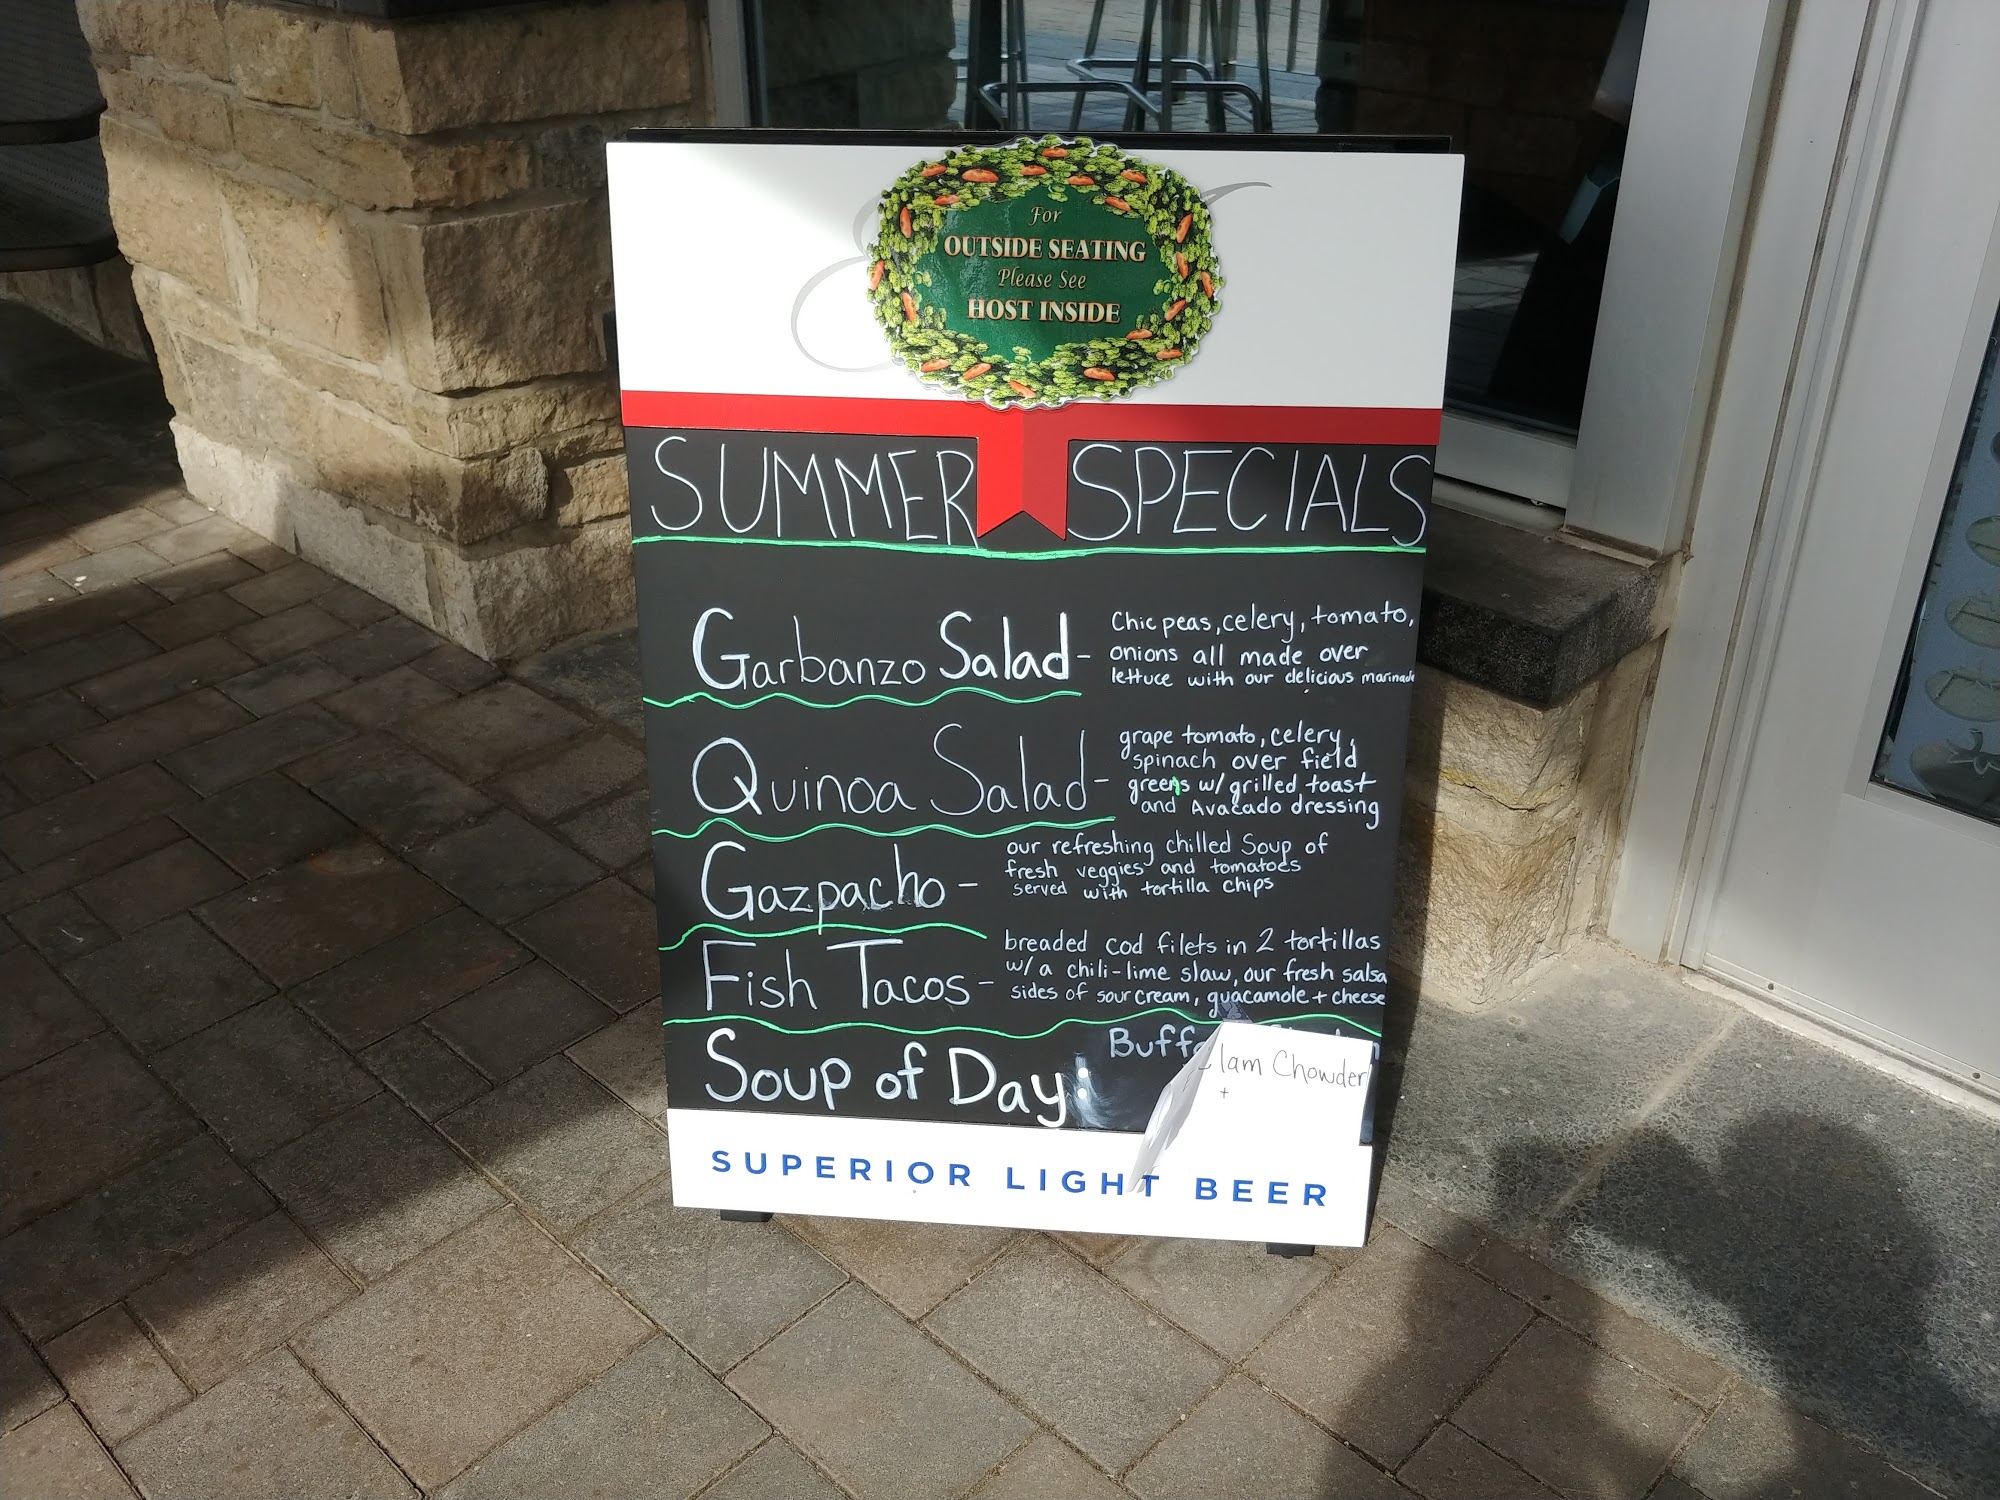 For
OUTSIDE SEATING
Please See
HOST INSIDE
SUMMER SPECIALS
Garbanzo Salad - Chic peas, celery, tomato,
onions all made over
lettuce with our delicious marinade
Quinoa Salad - grape tomato, celery,
spinach over field
greens w/ grilled toast
and Avacado dressing
Gazpacho - our refreshing chilled Soup of
fresh veggies and tomatoes
served with tortilla chips
Fish Tacos - breaded cod filets in 2 tortillas
w/ a chili-lime slaw, our fresh salsa
sides of sour cream, guacamole + cheese
Soup of Day: Clam Chowder
+
SUPERIOR LIGHT BEER